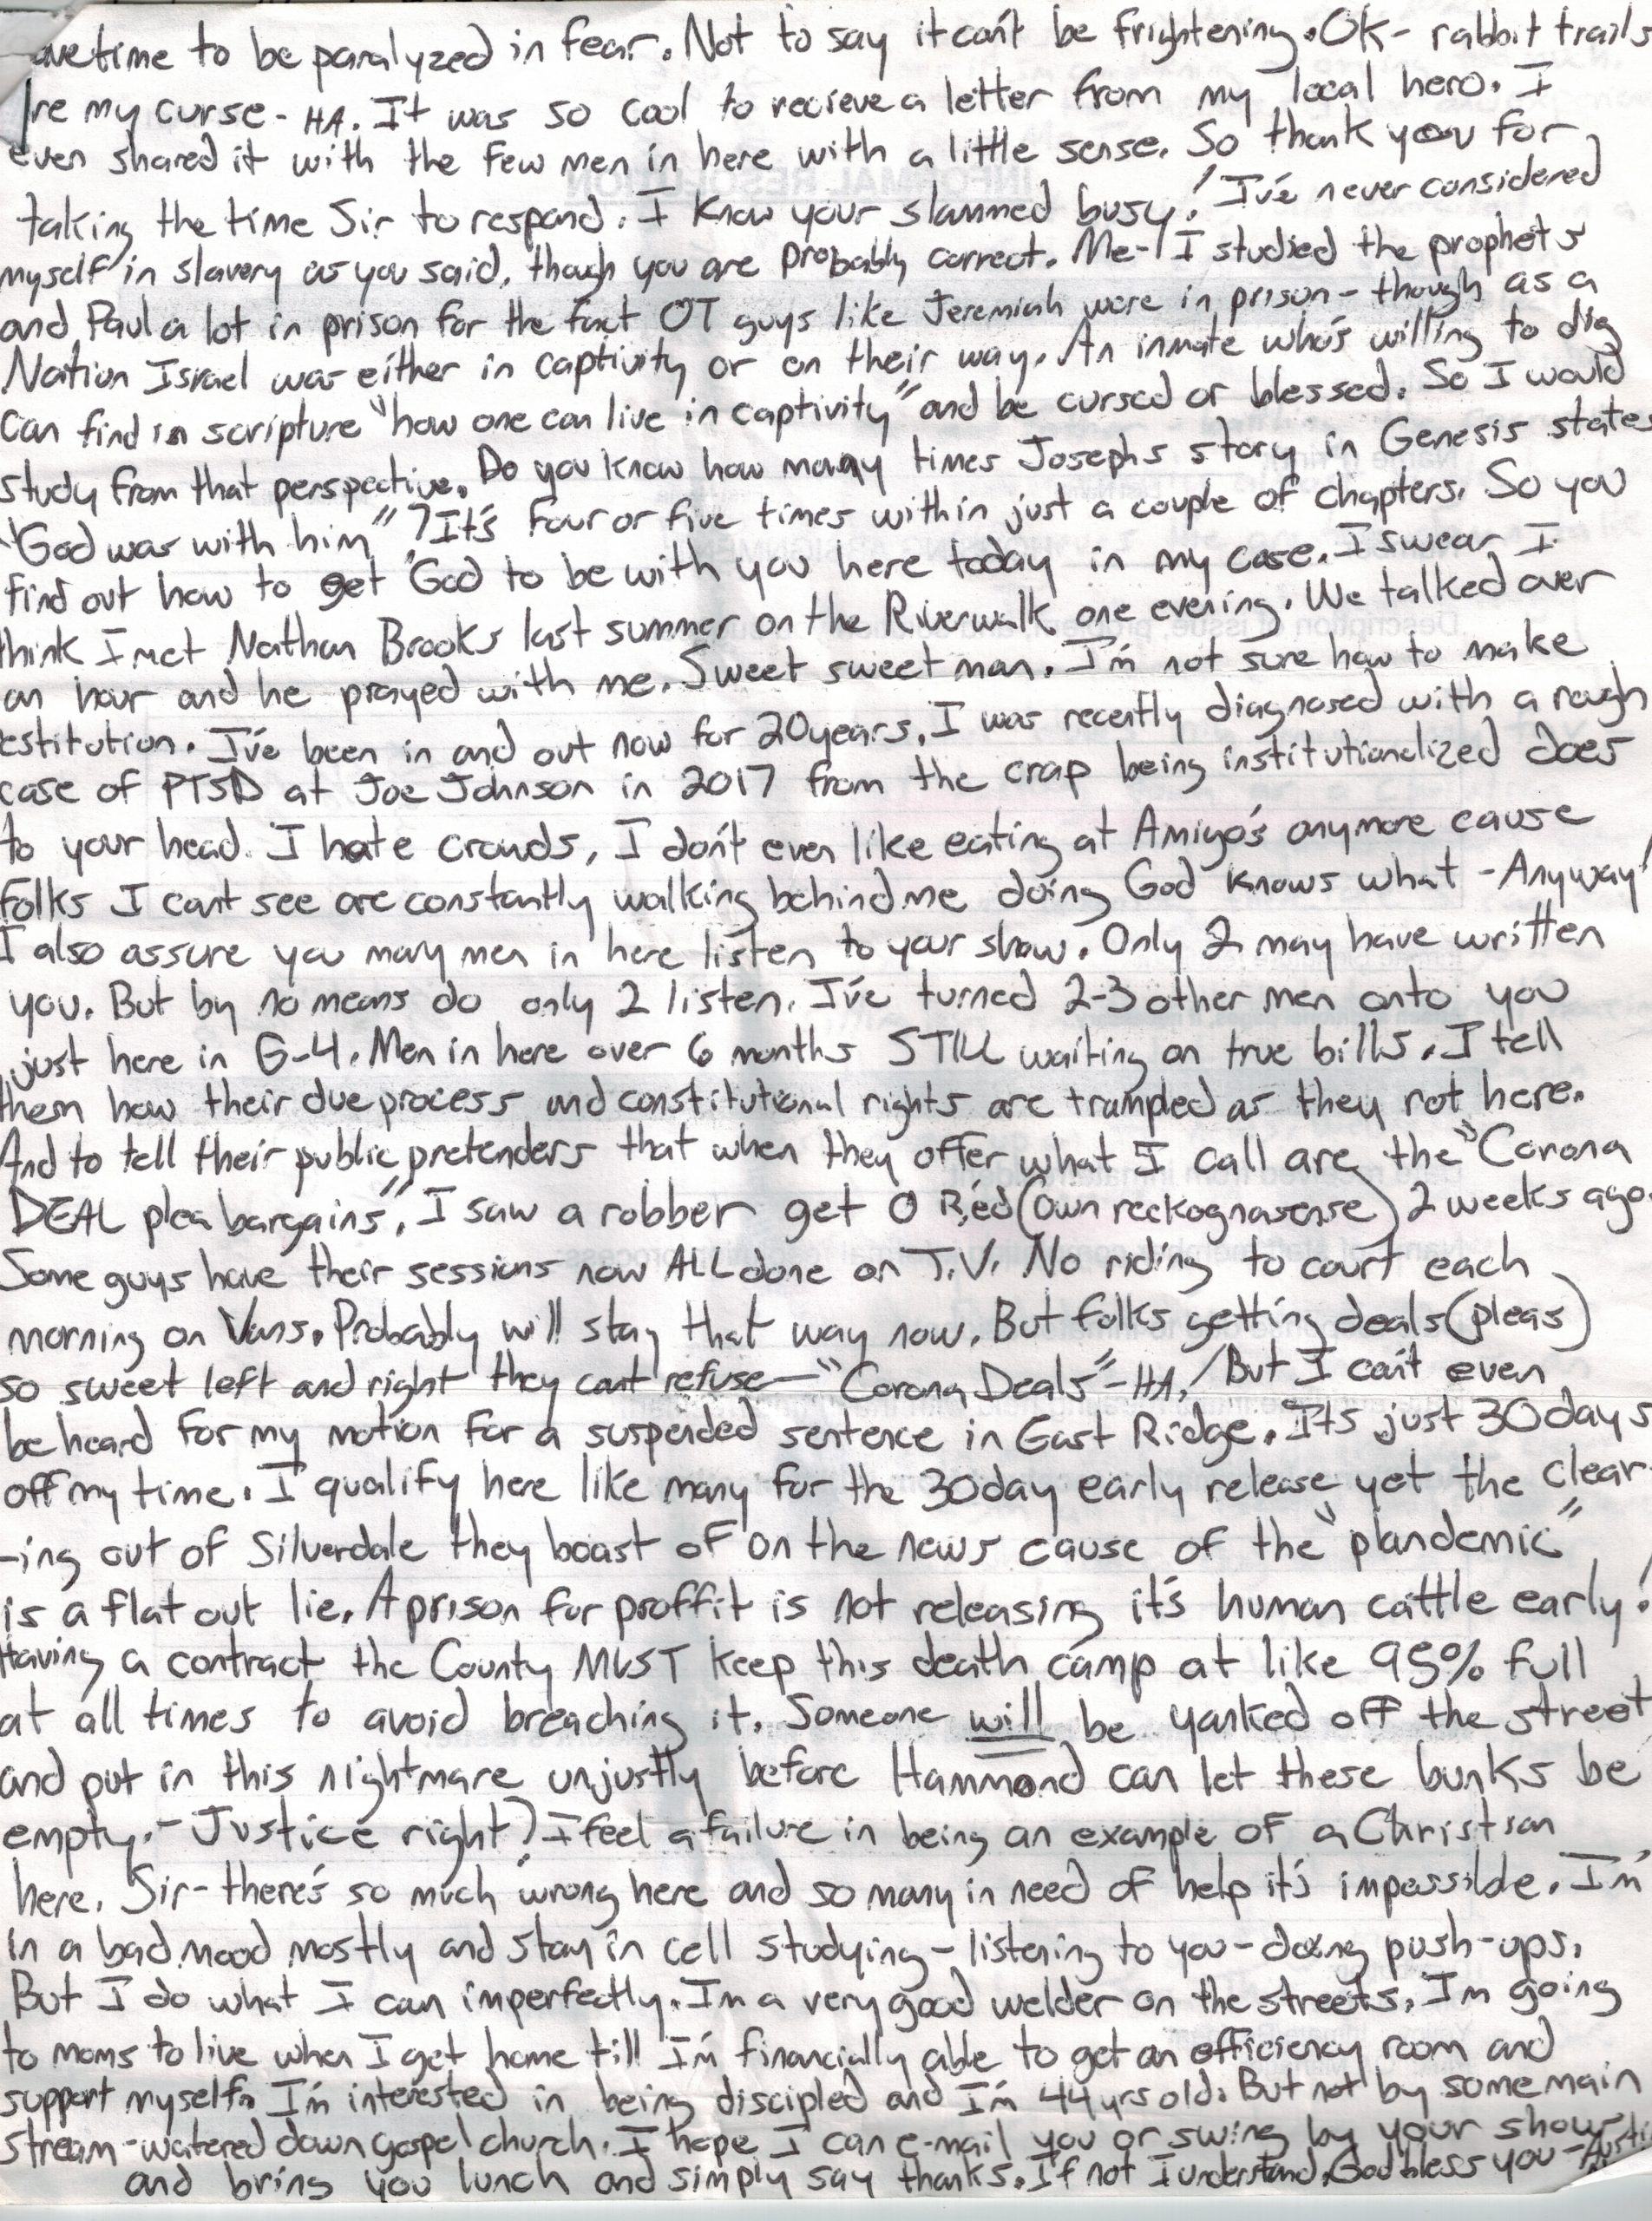 avetime to be paralyzed in fear. Not to say it can't be frightening. OK- rabbit trails
re my curse- HA. It was so cool to recieve a letter from my local hero. I
even shared it with the few men in here with a little sense. So thank you for
taking the time Sir to respond. I know your slammed busy! I've never considered
myself in slavery as you said, though you are probably correct. Me- I studied the prophets
and Paul a lot in prison for the fact OT guys like Jeremiah were in prison- though as a
Nation Israel was either in captivity or on their way. An inmate who's willing to dig
Can find in scripture "how one can live in captivity" and be cursed or blessed. So I would
study from that perspective. Do you know how many times Josephs story in Genesis states
"God was with him"? It's four or five times within just a couple of chapters. So you
find out how to get God to be with you here today in my case. I swear I
think I met Nathan Brooks last summer on the Riverwalk one evening. We talked over
an hour and he prayed with me. Sweet sweet man. I'm not sure how to make
estitution. I've been in and out now for 20 years. I was recently diagnosed with a rough
case of PTSD at Joe Johnson in 2017 from the crap being institutionalized does
to your head. I hate crowds, I don't even like eating at Amigo's anymore cause
folks I cant see are constantly walking behind me doing God knows what - Anyway!
I also assure you many men in here listen to your show. Only 2 may have written
you. But by no means do only 2 listen. I've turned 2-3 other men onto you
just here in G-4. Men in here over 6 months STILL waiting on true bills. I tell
them how their due process and constitutional rights are trampled as they rot here.
And to tell their public pretenders that when they offer what I call are the "Corona
DEAL plea bargains". I saw a robber get O R,'ed (own reckognasense) 2 weeks ago.
Some guys have their sessions now ALL done on T.V. No riding to court each
morning on Vans. Probably will stay that way now. But folks getting deals (pleas)
so sweet left and right they cant refuse - "Corona Deals" - HA! But I can't even
be heard for my motion for a suspended sentence in East Ridge. Its just 30 days
off my time. I qualify here like many for the 30 day early release yet the clear-
-ing out of Silverdale they boast of on the news cause of the "plandemic"
is a flat out lie. A prison for proffit is not releasing it's human cattle early!
Having a contract the County MUST keep this death camp at like 95% full
at all times to avoid breaching it. Someone will be yanked off the street
and put in this nightmare unjustly before Hammond can let these bunks be
empty. - Justice right? I feel a failure in being an example of a Christian
here. Sir- there's so much wrong here and so many in need of help it's impossible. I'm
in a bad mood mostly and stay in cell studying - listening to you - doing push-ups.
But I do what I can imperfectly. Im a very good welder on the streets. I'm going
to moms to live when I get home till I'm financially able to get an efficiency room and
support myself. I'm interested in being discipled and I'm 44 yrs old. But not by some main
stream - watered down gospel church. I hope I can e-mail you or swing by your show
and bring you lunch and simply say thanks. If not I understand. God bless you -